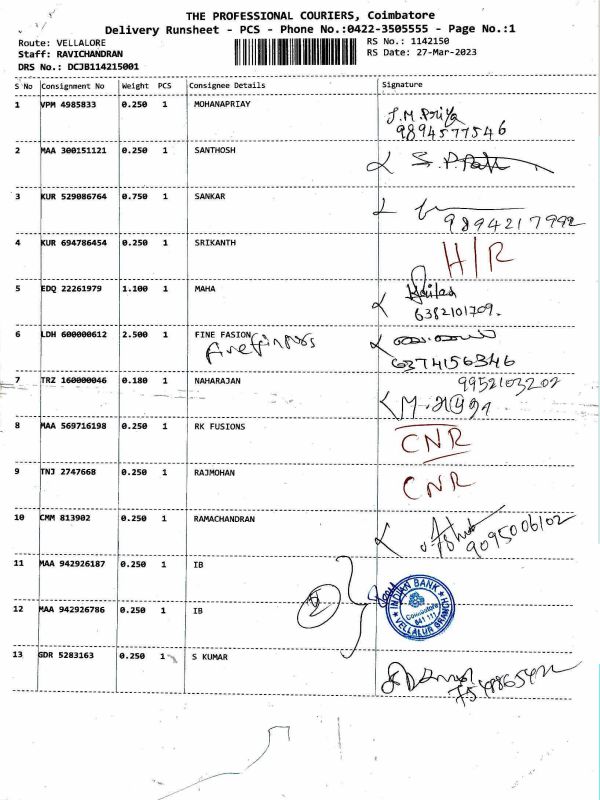 THE PROFESSIONAL COURIERS, Coimbatore
Delivery Runsheet - PCS - Phone No.:0422-3505555 - Page No.:1
Route: VELLALORE
RS No.: 1142150
Staff: RAVICHANDRAN
RS Date: 27-Mar-2023
DRS No.: DCJB114215001
S No Consignment No Weight PCS Consignee Details Signature
1 VPM 4985833 0.250 1 MOHANAPRIAY
J.M.Priya
9894577546
2 MAA 300151121 0.250 1 SANTHOSH
3 KUR 529086764 0.750 1 SANKAR
9894217992
4 KUR 694786454 0.250 1 SRIKANTH
H/R
5 EDQ 22261979 1.100 1 MAHA
6382101709.
6 LDH 600000612 2.500 1 FINE FASION
6374156346
7 TRZ 160000046 0.180 1 NAHARAJAN
9952103202
8 MAA 569716198 0.250 1 RK FUSIONS
CNR
9 TNJ 2747668 0.250 1 RAJMOHAN
CNR
10 CMM 813902 0.250 1 RAMACHANDRAN
9095006102
11 MAA 942926187 0.250 1 IB
12 MAA 942926786 0.250 1 IB
2
INDIAN BANK
Coimbatore
641 111
VELLALUR BRANCH
13 GDR 5283163 0.250 1 S KUMAR